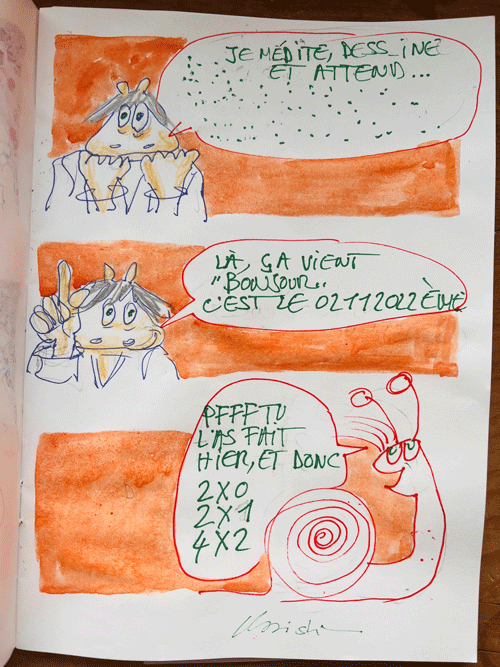 JE MÉDITE, DESSINE
ET ATTEND...
LÀ, ÇA VIENT
"BONJOUR"
C'EST LE 02112022ÈME
PFFFTU
L'AS FAIT
HIER, ET DONC
2X0
2X1
4X2